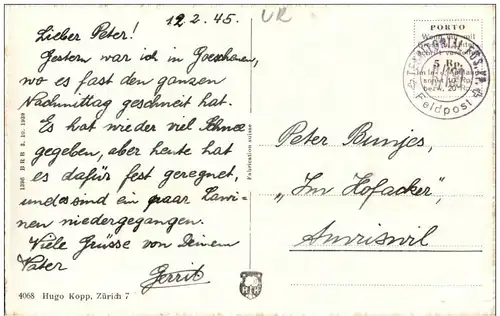 12.2.45.
Lieber Peter!
Gestern war ich in Goeschenen,
wo es fast den ganzen
Nachmittag geschneit hat.
Es hat wieder viel Schnee
gegeben, aber heute hat
es dafür fest geregnet,
und es sind ein paar Lawi-
nen niedergegangen.
Viele Grüsse von Deinem
Vater
Gerrit
UR
PORTO
5 Rp.
Feldpost
Peter Bunjes,
"Im Hofacker",
Amriswil
1396 BRB 3. 10. 1939
Fabrication suisse
4068 Hugo Kopp, Zürich 7